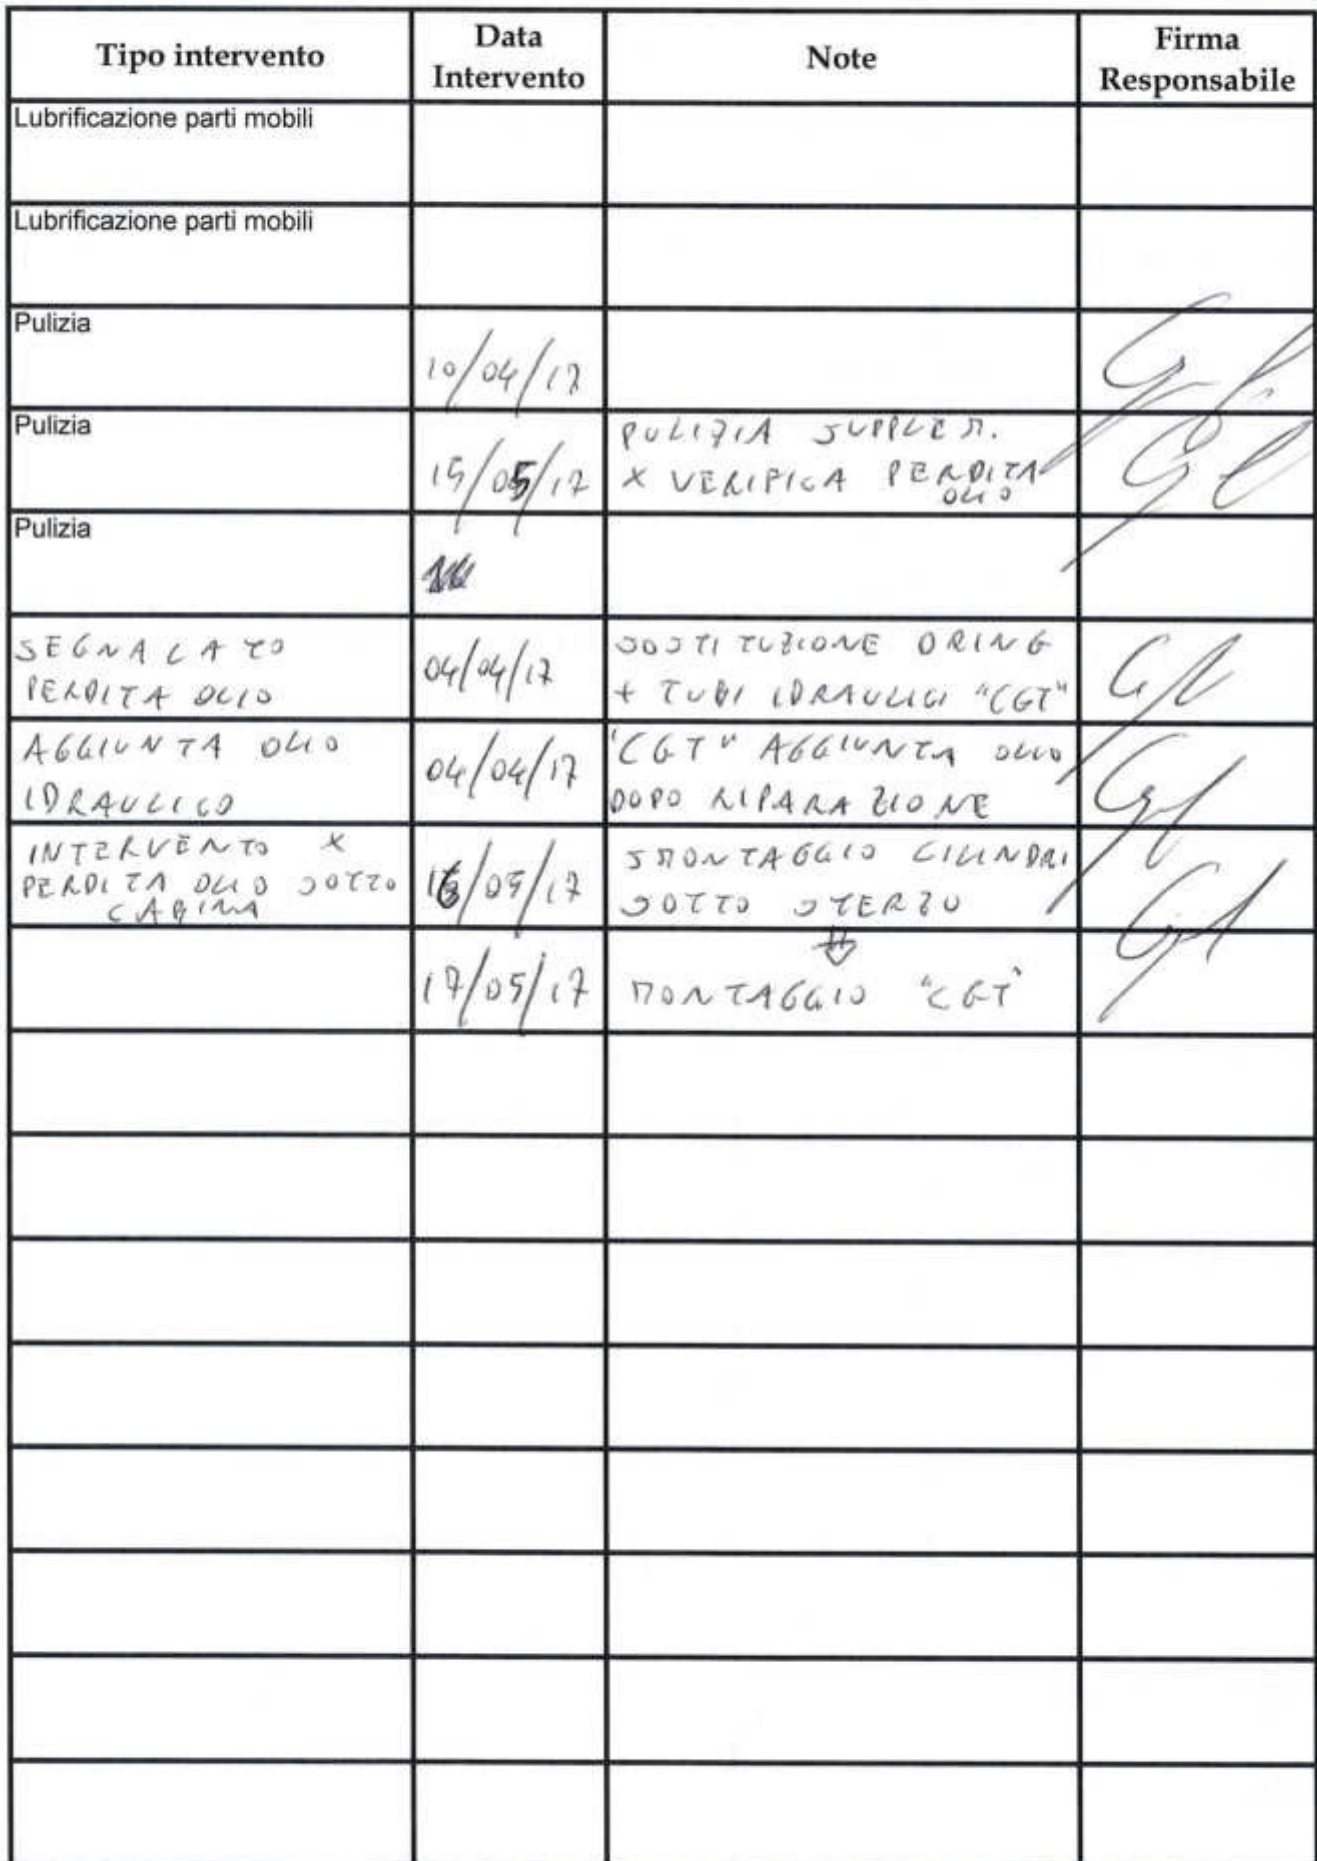 Tipo intervento
Data
Intervento
Note
Firma
Responsabile
Lubrificazione parti mobili
Lubrificazione parti mobili
Pulizia
10/04/17
Pulizia
15/05/17
PULIZIA SUPPLEM.
X VERIFICA PERDITA
OLIO
Pulizia
SEGNALATO
PERDITA OLIO
04/04/17
SOSTITUZIONE ORING
+ TUBI IDRAULICI "CGT"
AGGIUNTA OLIO
IDRAULICO
04/04/17
"CGT" AGGIUNTA OLIO
DOPO RIPARAZIONE
INTERVENTO X
PERDITA OLIO SOTTO
CABINA
16/05/17
SMONTAGGIO CILINDRI
SOTTO STERZO
17/05/17
MONTAGGIO "CGT"